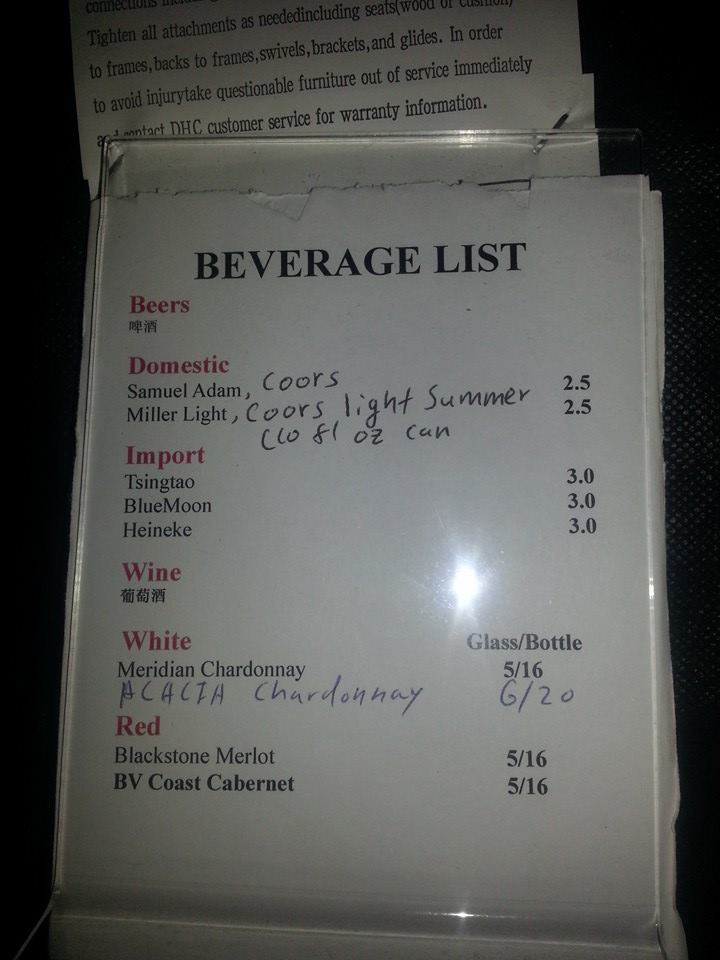 connections
Tighten all attachments as neededincluding seats(wood or cushion)
to frames,backs to frames,swivels,brackets,and glides. In order
to avoid injurytake questionable furniture out of service immediately
and contact DHC customer service for warranty information.
BEVERAGE LIST
Beers
啤酒
Domestic
Samuel Adam, Coors 2.5
Miller Light, Coors light Summer 2.5
fl oz can
Import
Tsingtao 3.0
BlueMoon 3.0
Heineke 3.0
Wine
葡萄酒
White Glass/Bottle
Meridian Chardonnay 5/16
ACACIA Chardonnay 6/20
Red
Blackstone Merlot 5/16
BV Coast Cabernet 5/16